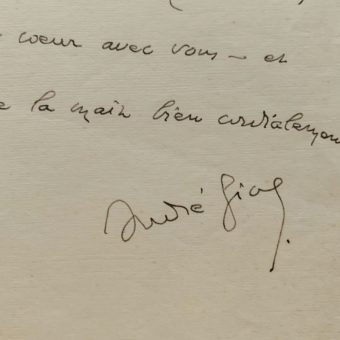 coeur avec vous – et
la main bien cordialement
André Gide